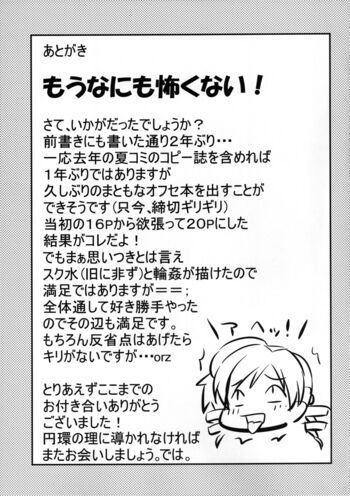 あとがき
もうなにも怖くない！
さて、いかがだったでしょうか？
前書きにも書いた通り２年ぶり・・・
一応去年の夏コミのコピー誌を含めれば
１年ぶりではありますが
久しぶりのまともなオフセ本を出すことが
できそうです（只今、締切ギリギリ）
当初の１６Ｐから欲張って２０Ｐにした
結果がコレだよ！
でもまぁ思いつきとは言え
スク水（旧に非ず）と輪姦が描けたので
満足ではありますが＝＝；
全体通して好き勝手やった
のでその辺も満足です。
もちろん反省点はあげたら
キリがないですが・・・orz
アヘッ！
とりあえずここまでの
お付き合いありがとう
ございました！
円環の理に導かれなければ
またお会いしましょう。では。